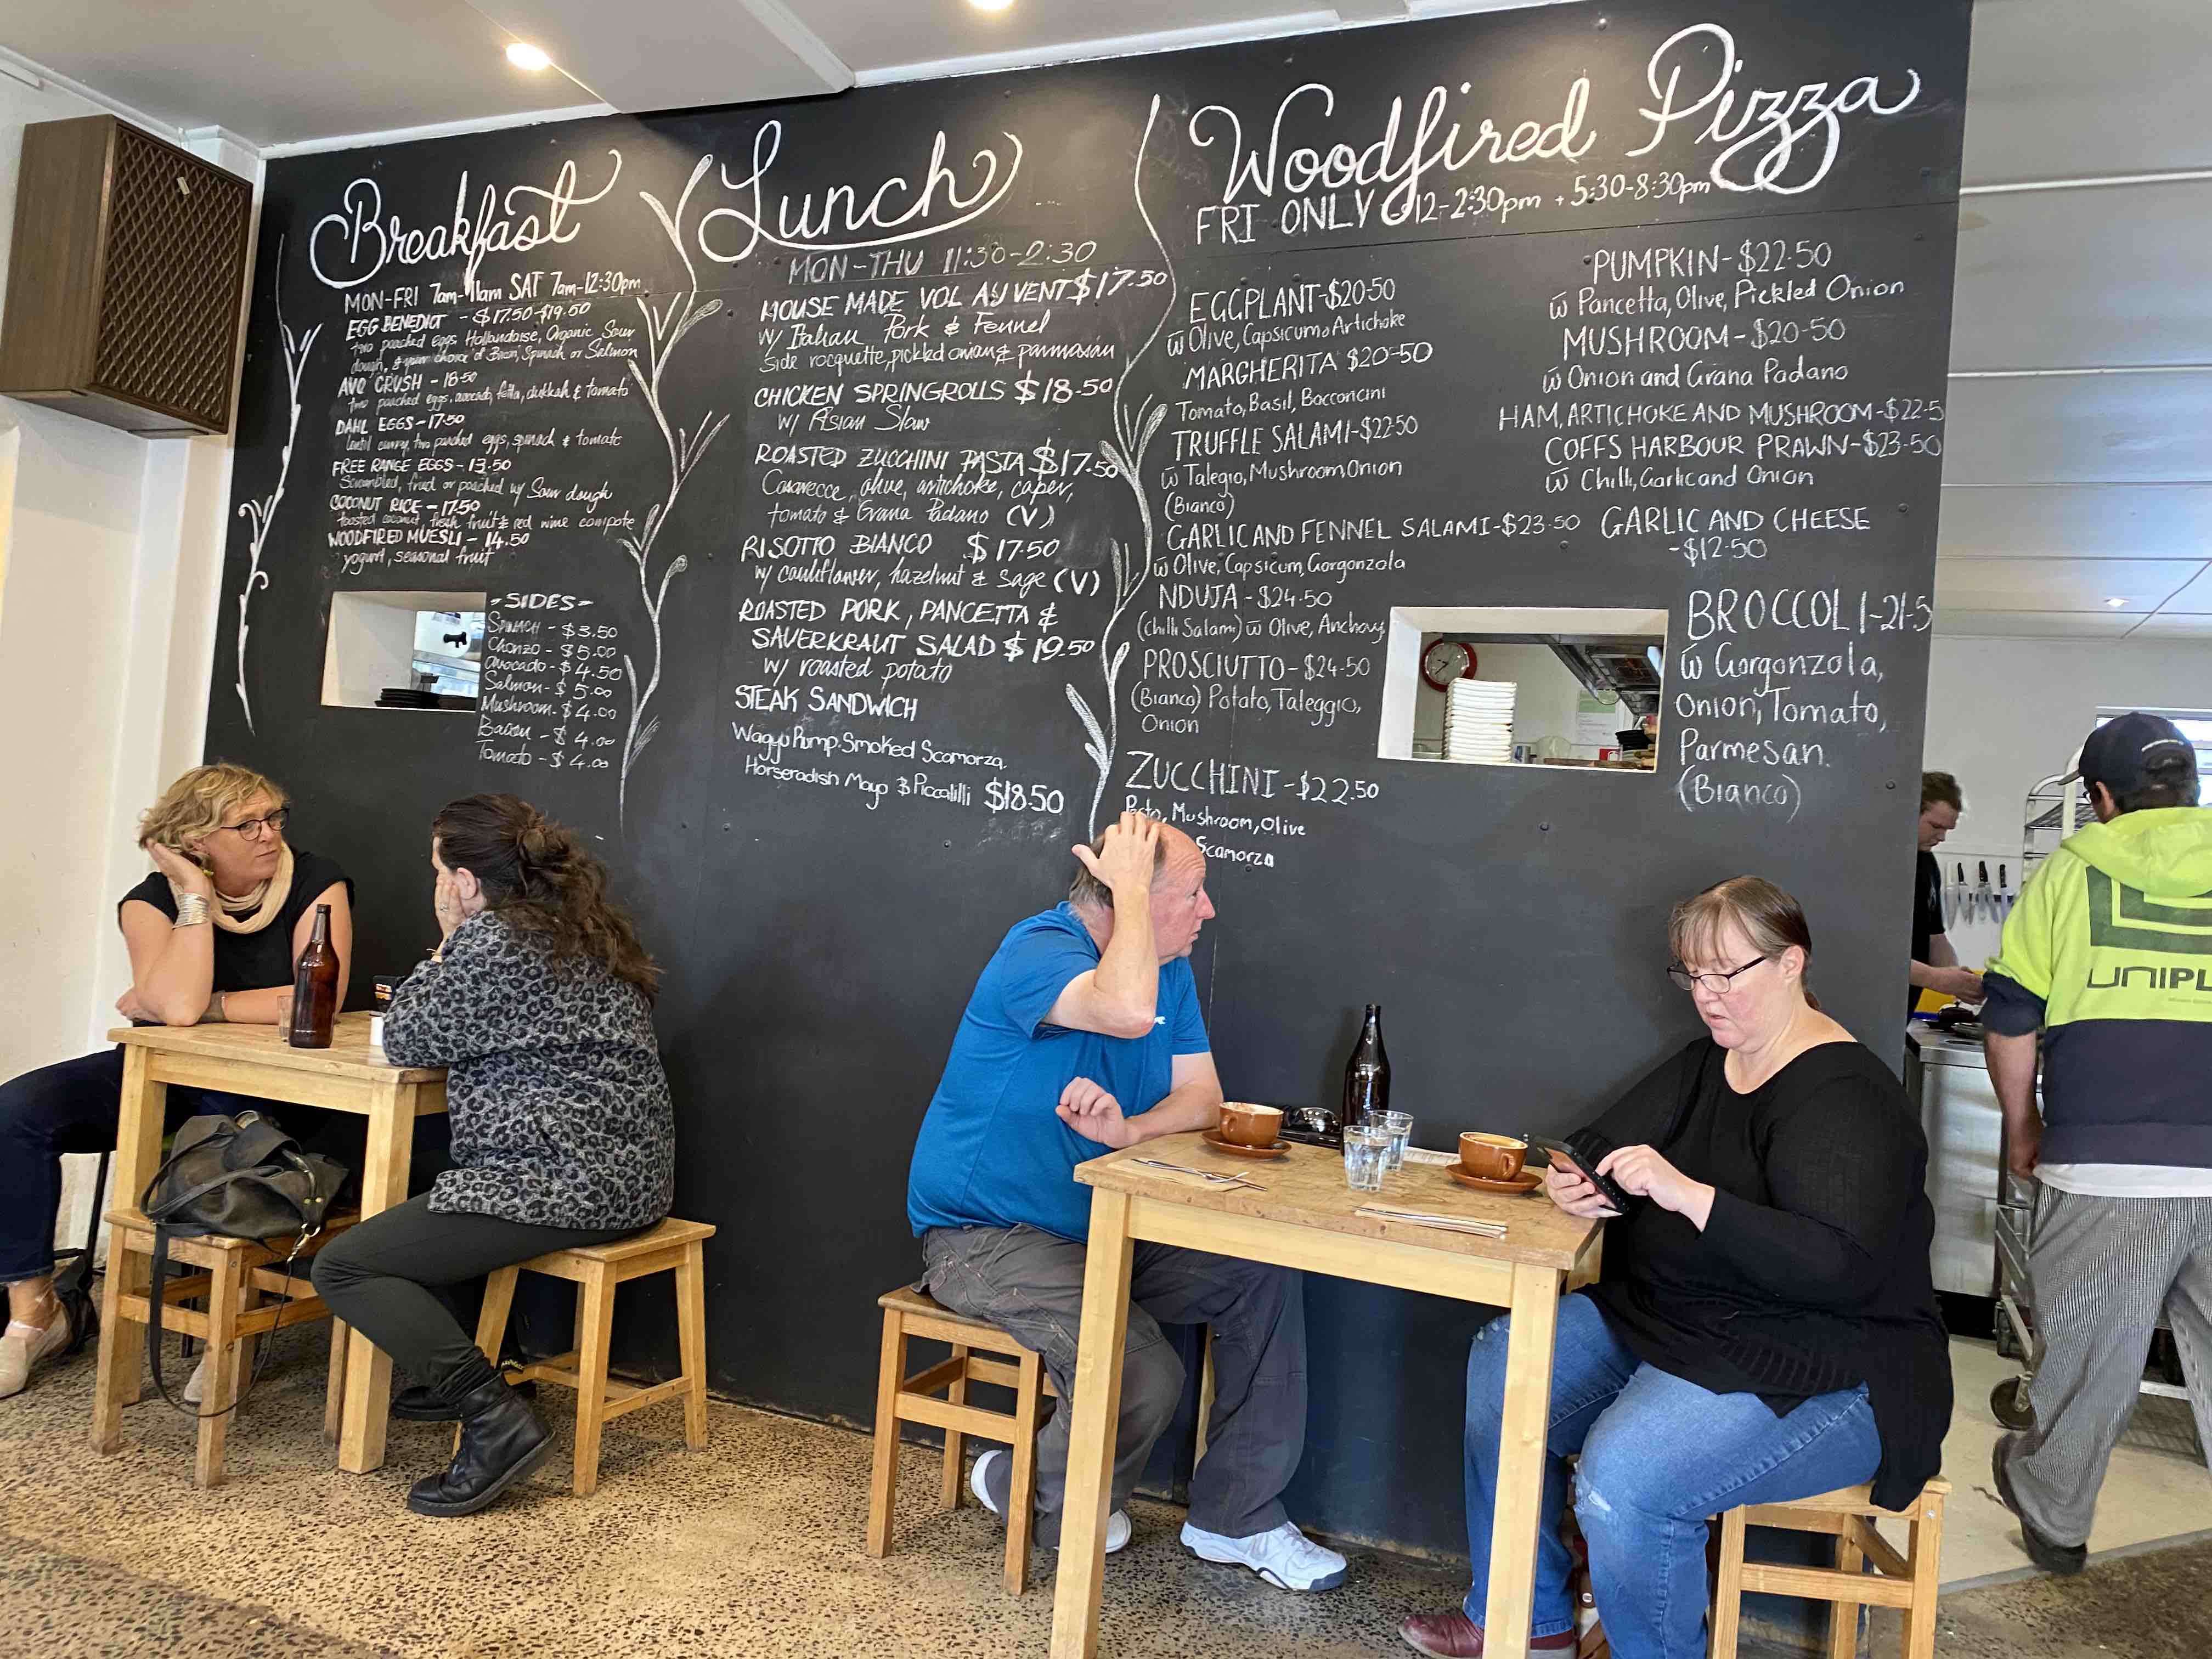 Breakfast
MON-FRI 7am-11am SAT 7am-12:30pm
EGG BENEDICT - $17.50-$19.50
two poached eggs Hollandaise, Organic Sour
dough, & your choice of Bacon, Spinach or Salmon
AVO CRUSH - 18.50
two poached eggs, avocado, fetta, dukkah & tomato
DAHL EGGS - 17.50
lentil curry, two poached eggs, spinach & tomato
FREE RANGE EGGS - 13.50
Scrambled, fried or poached w/ Sour dough
COCONUT RICE - 17.50
toasted coconut, fresh fruit & red wine compote
WOODFIRED MUESLI - 14.50
yogurt, seasonal fruit
- SIDES -
SPINACH - $3.50
Chorizo - $5.00
avocado - $4.50
Salmon - $5.00
Mushroom - $4.00
Bacon - $4.00
Tomato - $4.00
Lunch
MON-THU 11:30-2:30
HOUSE MADE VOL AU VENT $17.50
w/ Italian Pork & Fennel
side rocquette, pickled onion & parmasan
CHICKEN SPRINGROLLS $18.50
w/ Asian Slaw
ROASTED ZUCCHINI PASTA $17.50
Casarecce, olive, artichoke, caper,
tomato & Grana Padano (V)
RISOTTO BIANCO $17.50
w/ cauliflower, hazelnut & sage (V)
ROASTED PORK, PANCETTA &
SAUERKRAUT SALAD $19.50
w/ roasted potato
STEAK SANDWICH
Wagyu Rump. Smoked Scamorza.
Horseradish Mayo & Piccalilli $18.50
Woodfired Pizza
FRI ONLY 12-2:30pm + 5:30-8:30pm
EGGPLANT-$20.50
w̄ Olive, Capsicum, Artichoke
MARGHERITA $20-50
Tomato, Basil, Bocconcini
TRUFFLE SALAMI-$22.50
w̄ Talegio, Mushroom, Onion
(Bianco)
GARLIC AND FENNEL SALAMI-$23.50
w̄ Olive, Capsicum, Gorgonzola
NDUJA - $24.50
(Chilli Salami) w̄ Olive, Anchovy
PROSCIUTTO-$24.50
(Bianco) Potato, Taleggio,
Onion
ZUCCHINI-$22.50
Pesto, Mushroom, Olive
Scamorza
PUMPKIN-$22.50
w̄ Pancetta, Olive, Pickled Onion
MUSHROOM-$20.50
w̄ Onion and Grana Padano
HAM, ARTICHOKE AND MUSHROOM-$22.5
COFFS HARBOUR PRAWN-$23.50
w̄ Chilli, Garlic and Onion
GARLIC AND CHEESE
-$12.50
BROCCOLI-21.5
w̄ Gorgonzola,
Onion, Tomato,
Parmesan.
(Bianco)
UNIPL